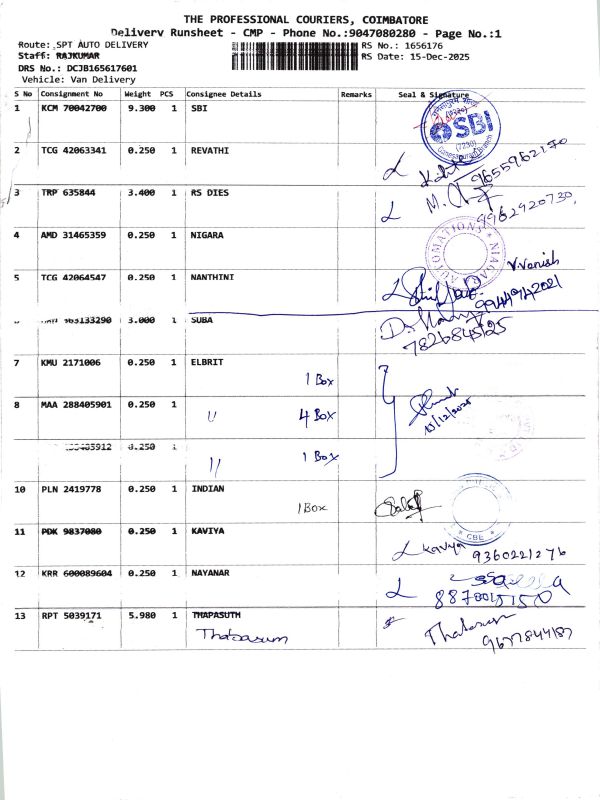 THE PROFESSIONAL COURIERS, COIMBATORE
Delivery Runsheet - CMP - Phone No.:9047080280 - Page No.:1
Route: SPT AUTO DELIVERY RS No.: 1656176
Staff: RAJKUMAR RS Date: 15-Dec-2025
DRS No.: DCJB165617601
Vehicle: Van Delivery
S No Consignment No Weight PCS Consignee Details Remarks Seal & Signature
1 KCM 70042700 9.300 1 SBI
SBI
(7230)
2 TCG 42063341 0.250 1 REVATHI
9655962170
3 TRP 635844 3.400 1 RS DIES
M.
9962920730
4 AMD 31465359 0.250 1 NIGARA
AUTOMATIONS
V.Vanish
5 TCG 42064547 0.250 1 NANTHINI
9944942021
963133290 3.000 1 SUBA
7826845125
7 KMU 2171006 0.250 1 ELBRIT
1 Box
8 MAA 288405901 0.250 1
4 Box
15/12/2025
0.250 1
1 Box
10 PLN 2419778 0.250 1 INDIAN
1 Box
CBE
11 PDK 9837080 0.250 1 KAVIYA
Kaviya 9360221276
12 KRR 600089604 0.250 1 NAYANAR
13 RPT 5039171 5.980 1 THAPASUTH
Thabasum
Thabasum
9677844187